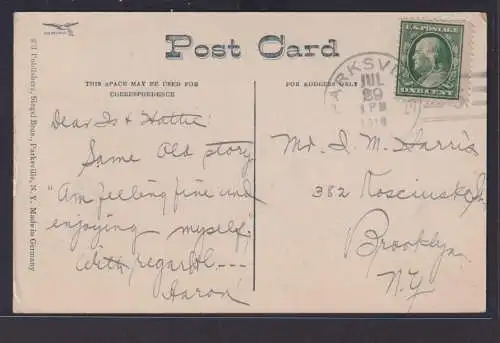 Post Card
THIS SPACE MAY BE USED FOR
CORRESPONDENCE
FOR ADDRESS ONLY
PARKSVILLE
JUL
29
1 PM
1910
U.S. POSTAGE
ONE CENT
Publishers, Siegel Bros., Parksville, N. Y. Made in Germany
Dear Is & Hattie
Same Old story
"Am feeling fine and
enjoying myself."
With regards ---
Aaron
Mr. I. M. Harris
382 Kosciusko St.
Brooklyn
N.Y.